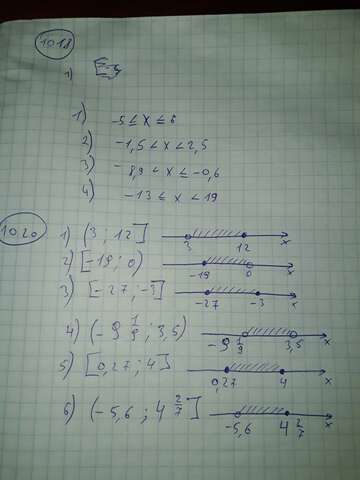 1018
1)
1) -5 ≤ x ≤ 6
2) -1,5 < x < 2,5
3) -8,9 < x ≤ -0,6
4) -13 ≤ x < 19
1020
1) (3 ; 12] 3 12 x
2) [-19 ; 0) -19 0 x
3) [-27 ; -3] -27 -3 x
4) (-9 1/9 ; 3,5) -9 1/9 3,5 x
5) [0,27 ; 4] 0,27 4 x
6) (-5,6 ; 4 2/7] -5,6 4 2/7 x